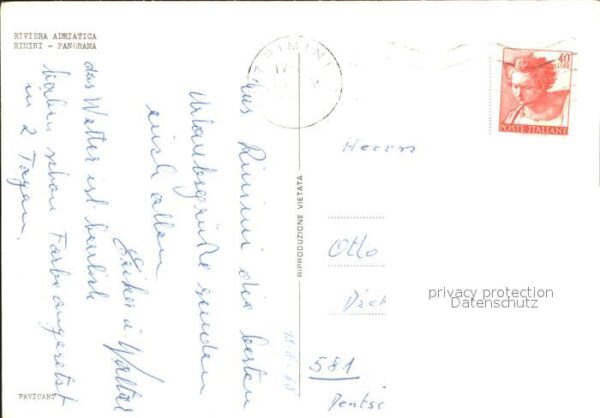 RIVIERA ADRIATICA
RIMINI - PANORAMA
RIMINI
40
LIRE
POSTE ITALIANE
Aus Rimini die besten
Urlaubsgrüße senden
euch allen
Erika u Walter
das Wetter ist herrlich
haben schon Farbe angesetzt
in 2 Tagen.
RIPRODUZIONE VIETATA
Herrn
Otto
581
privacy protection
Datenschutz
PAVICART